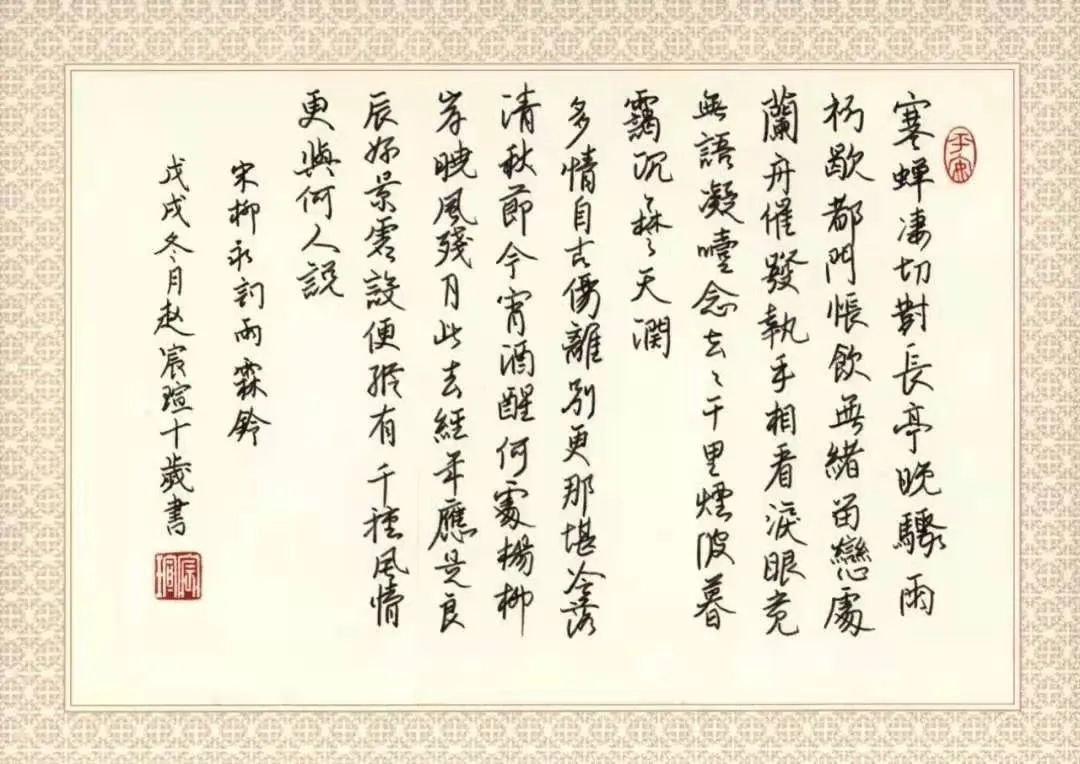 平安
寒蝉凄切對長亭晚驟雨
初歇都門帳飲無緒留戀處
蘭舟催發執手相看淚眼竟
無語凝噎念去々千里煙波暮
靄沉々楚天濶
多情自古傷離別更那堪冷落
清秋節今宵酒醒何處楊柳
岸曉風殘月此去經年應是良
辰好景虛設便縱有千種風情
更與何人説
宋柳永詞雨霖鈴
戊戌冬月赵宸瑄十歲書
宸瑄